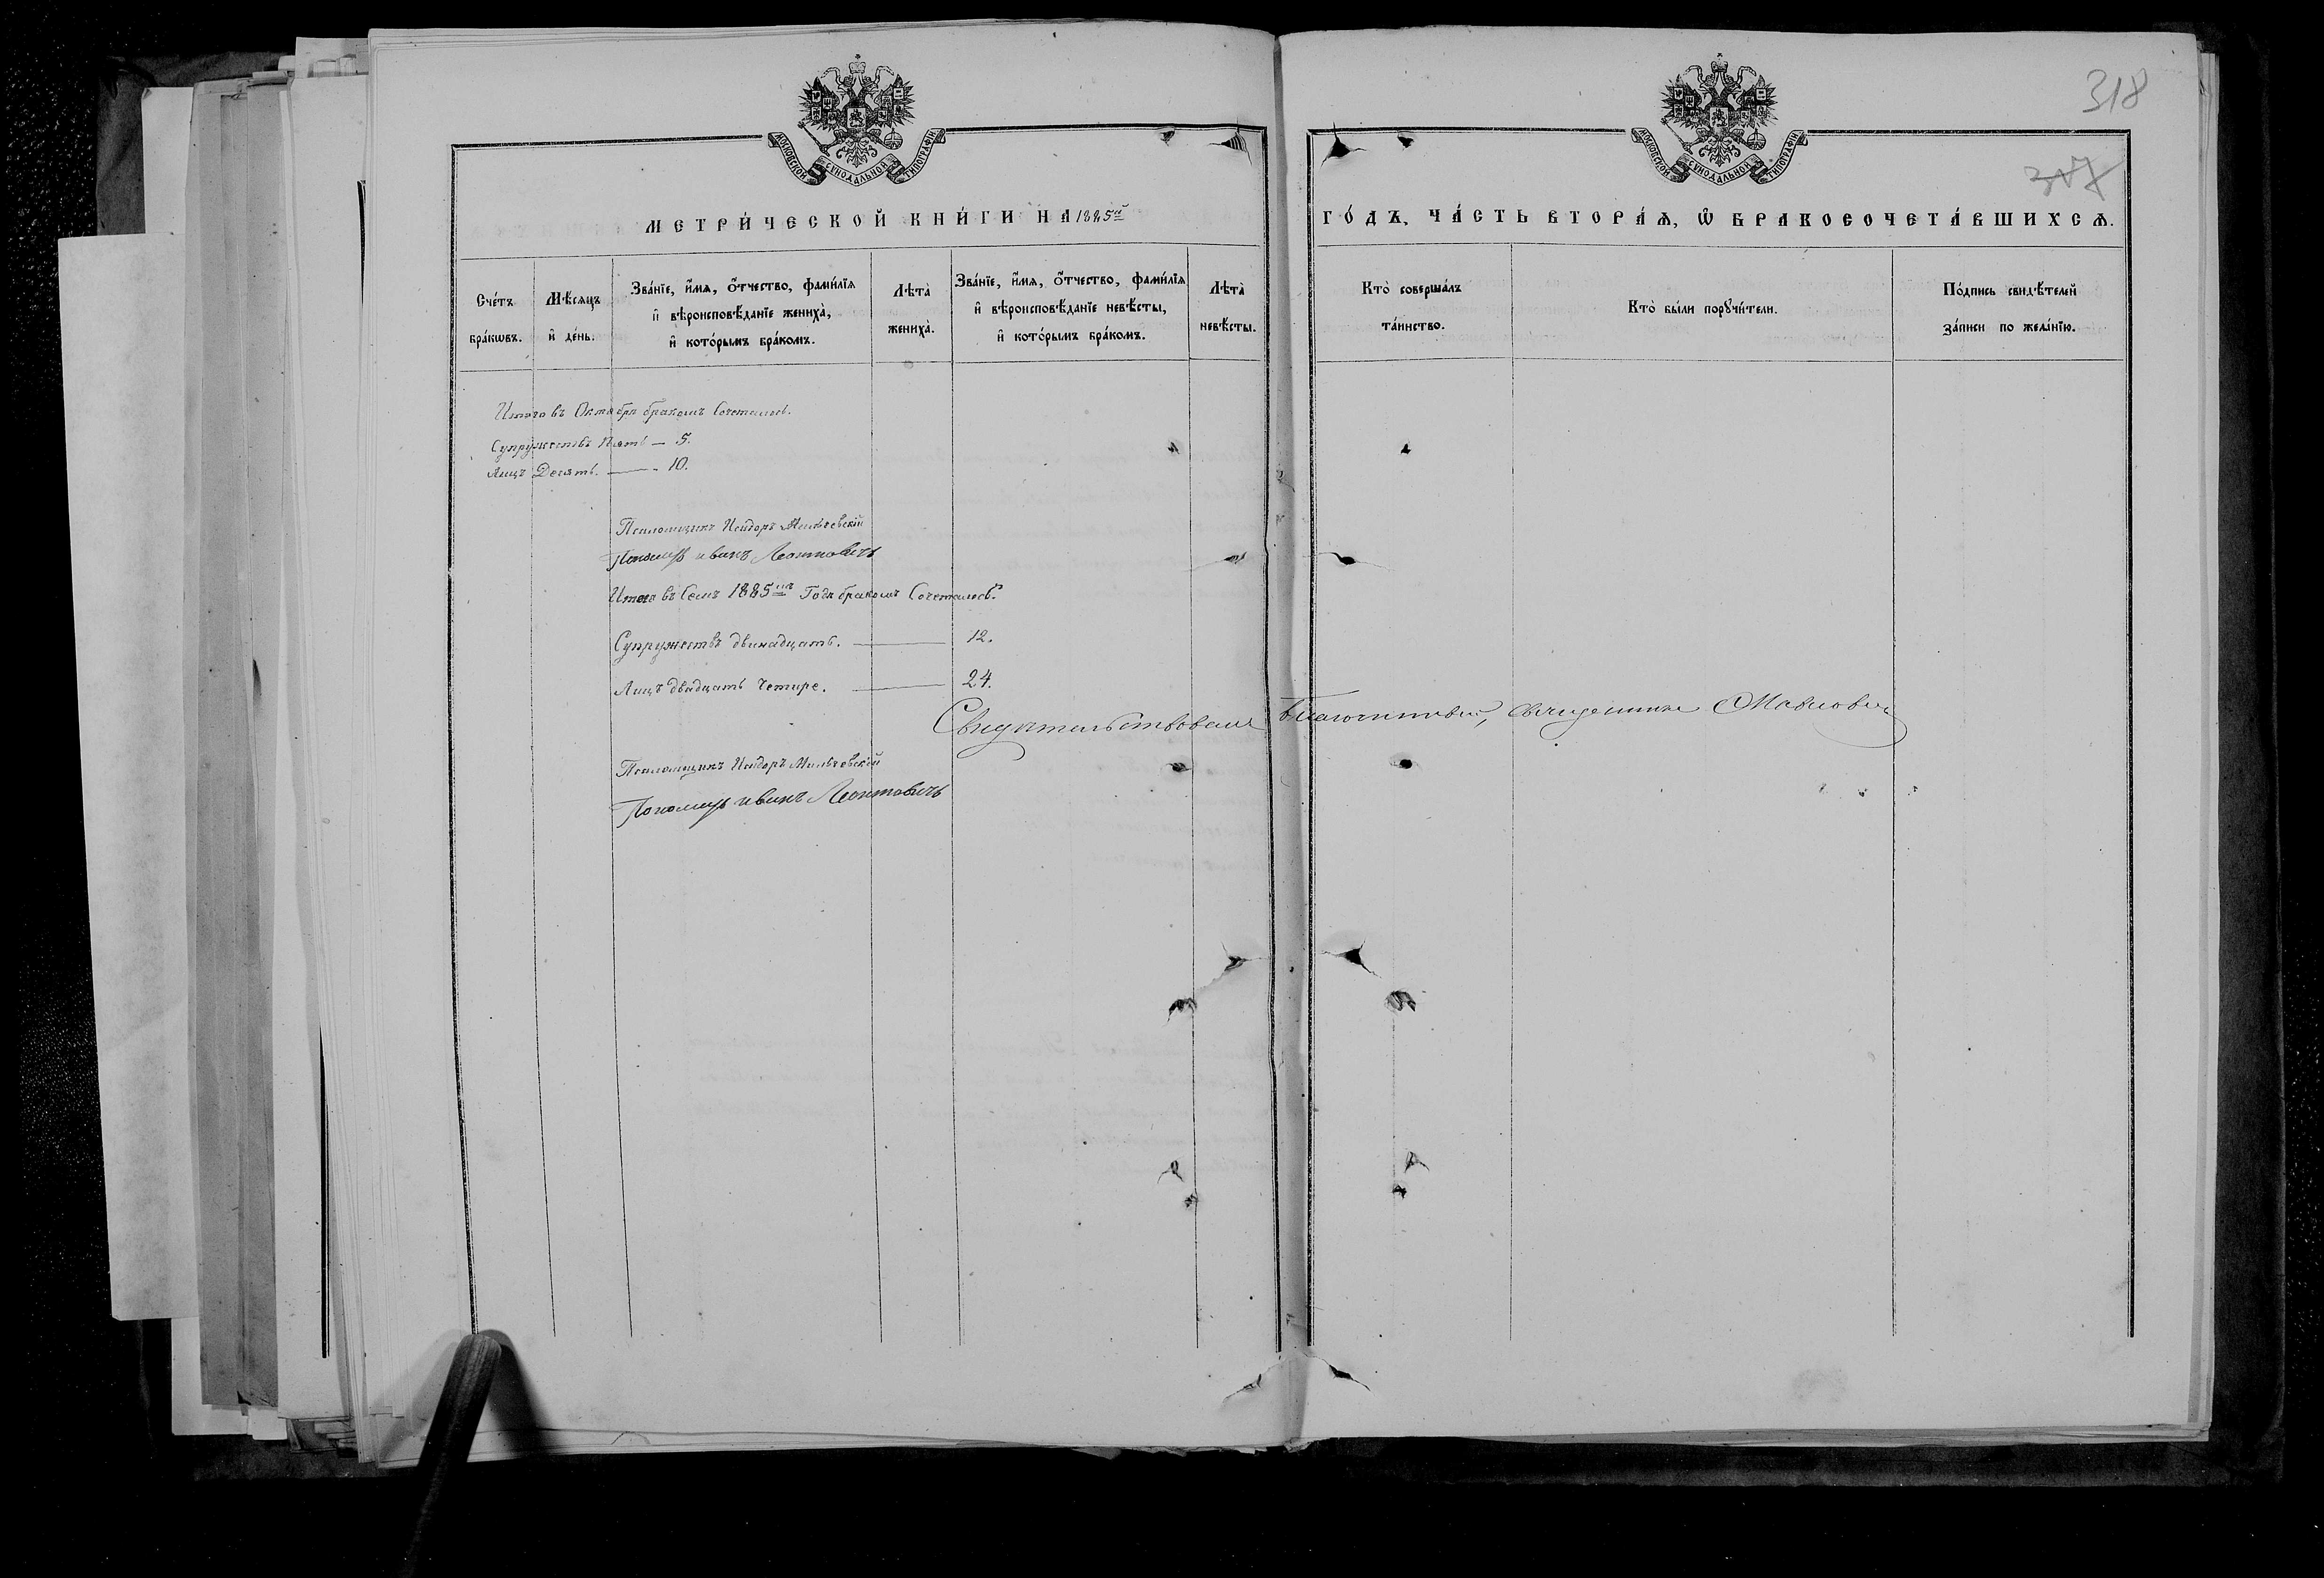 318
МОСКОВСКОЙ СѴНОДАЛЬНОЙ ТИПОГРАФІИ
МОСКОВСКОЙ СѴНОДАЛЬНОЙ ТИПОГРАФІИ
МЕТРИ́ЧЕСКОЙ КНИ́ГИ НА 1885й
ГО́ДЪ, ЧА́СТЬ ВТОРА́Ѧ, Ѡ҆ БРАКОСОЧЕТА́ВШИХСѦ.
Сче́тъ бра́кѡвъ.
Мѣ́сяцъ и҆ де́нь.
Зва́нїе, и҆́мя, ѻ҆́тчество, фами́лїя и҆ вѣроисповѣ́данїе жениха̀, и҆ кото́рымъ бра́комъ.
Лѣта̀ жениха̀.
Зва́нїе, и҆́мя, ѻ҆́тчество, фами́лїя и҆ вѣроисповѣ́данїе невѣ́сты, и҆ кото́рымъ бра́комъ.
Лѣта̀ невѣ́сты.
Кто̀ соверша́лъ та́инство.
Кто̀ бы́ли порꙋчи́тели.
По́дпись свидѣ́телей за́писи по жела́нїю.
Итого въ Октябрѣ бракомъ Сочеталось.
Супружествъ Пять — 5.
Лицъ Десять. — 10.
Псаломщикъ Исидоръ
Пономарь иванъ Леонтовичъ
Итого въ Семъ 1885мъ Годѣ бракомъ Сочеталось:
Супружествъ двинадцать. — 12.
Лицъ двадцать Четире. — 24.
Свидѣтельствовалъ Благочинный, священникъ
Псаломщикъ Исидоръ Мильчевскій
Пономарь иванъ Леонтовичъ